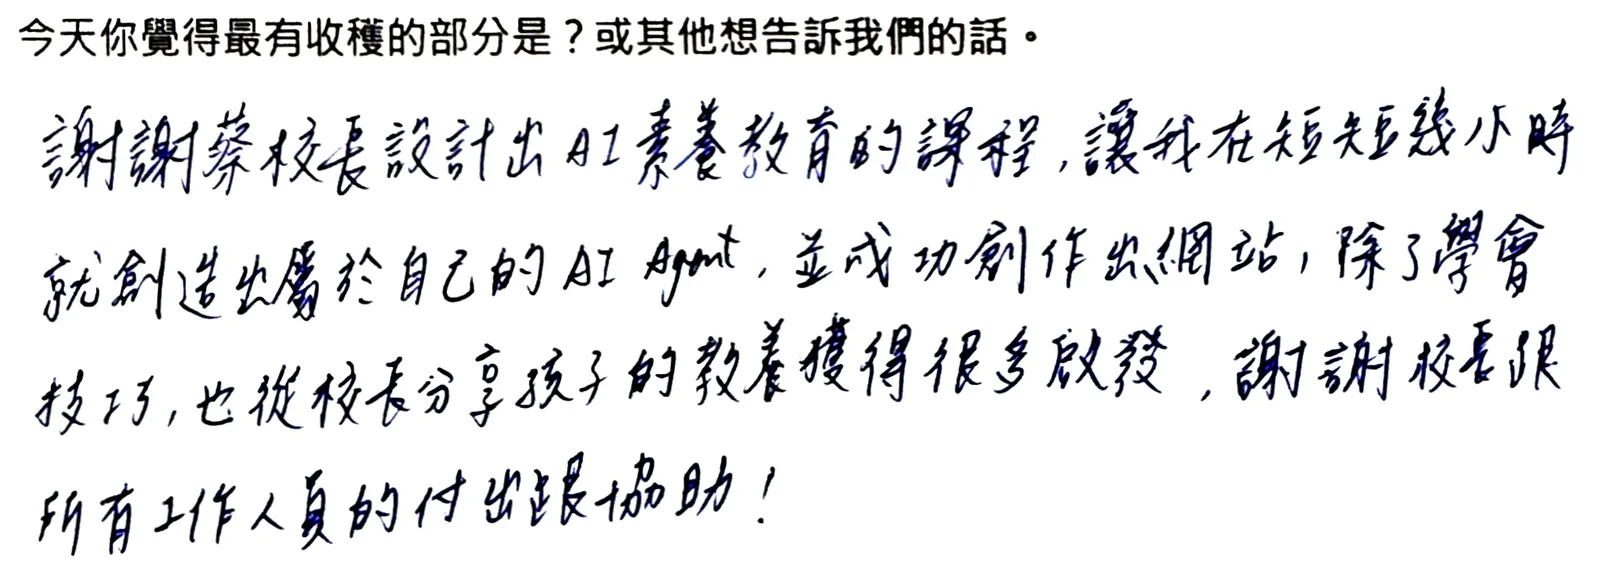 今天你覺得最有收穫的部分是？或其他想告訴我們的話。
謝謝蔡校長設計出AI素養教育的課程,讓我在短短幾小時
就創造出屬於自己的AI Agent,並成功創作出網站,除了學會
技巧,也從校長分享孩子的教養獲得很多啟發,謝謝校長跟
所有工作人員的付出跟協助!